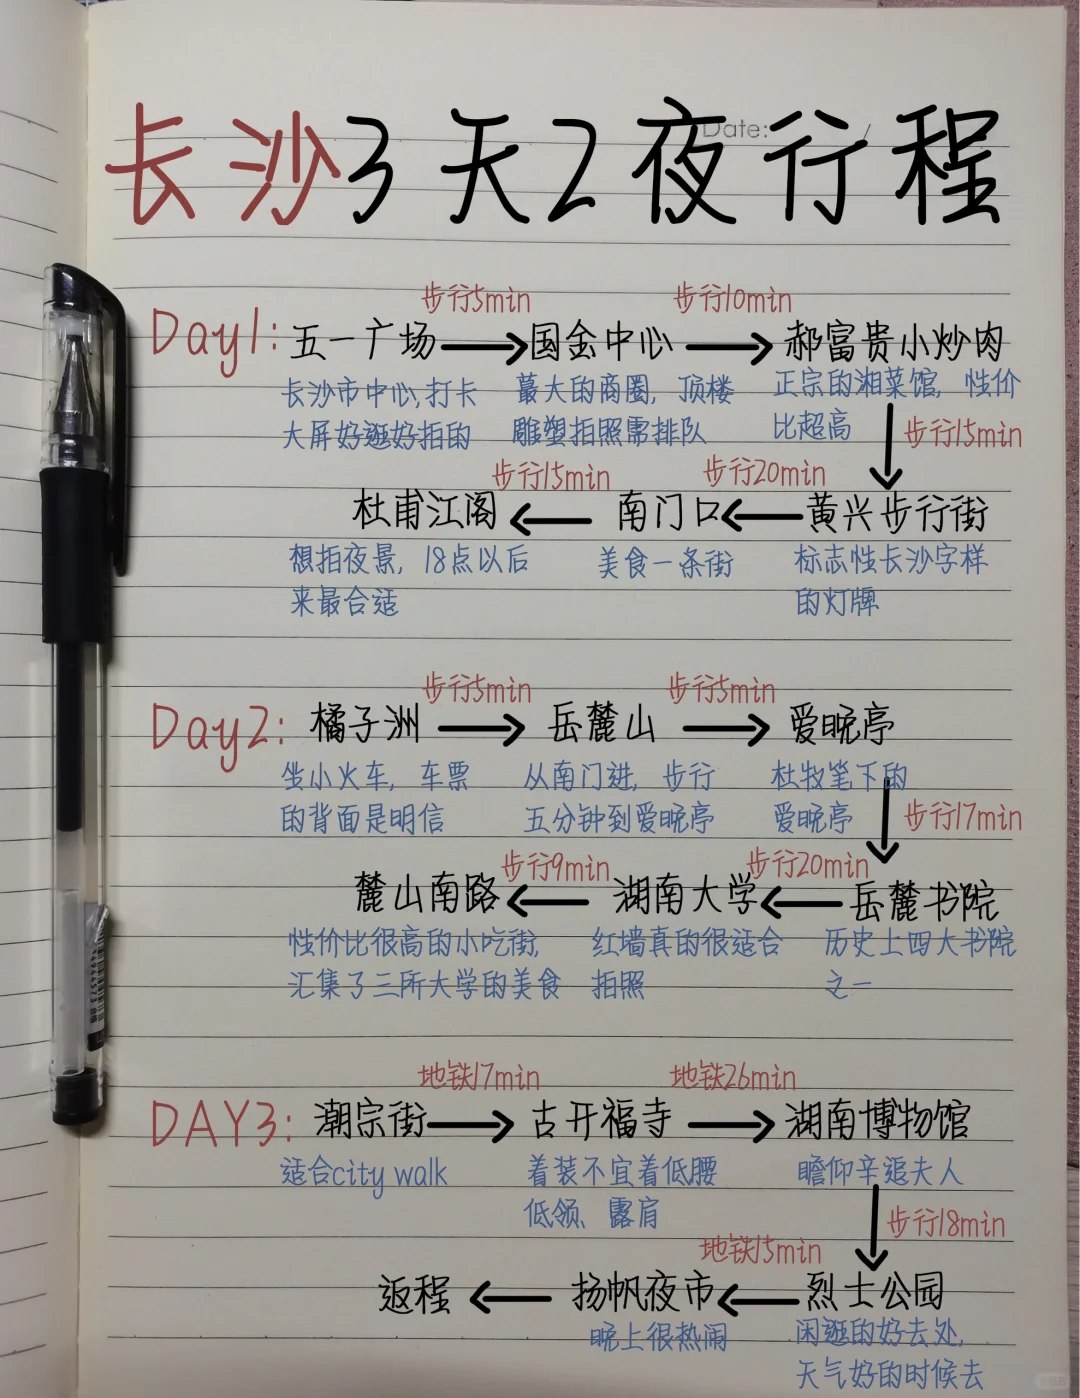 Date: /
长沙3天2夜行程
步行5min 步行10min
Day1: 五一广场 国金中心 郝富贵小炒肉
长沙市中心,打卡 最大的商圈,顶楼 正宗的湘菜馆,性价
大屏好逛好拍的 雕塑拍照需排队 比超高
步行15min
步行15min 步行20min
杜甫江阁 南门口 黄兴步行街
想拍夜景,18点以后 美食一条街 标志性长沙字样
来最合适 的灯牌
步行5min 步行5min
Day2: 橘子洲 岳麓山 爱晚亭
坐小火车,车票 从南门进,步行 杜牧笔下的
的背面是明信 五分钟到爱晚亭 爱晚亭
步行17min
步行9min 步行20min
麓山南路 湖南大学 岳麓书院
性价比很高的小吃街, 红墙真的很适合 历史上四大书院
汇集了三所大学的美食 拍照 之一
地铁17min 地铁26min
DAY3: 潮宗街 古开福寺 湖南博物馆
适合city walk 着装不宜着低腰 瞻仰辛追夫人
低领、露肩
步行18min
地铁15min
返程 扬帆夜市 烈士公园
晚上很热闹 闲逛的好去处,
天气好的时候去